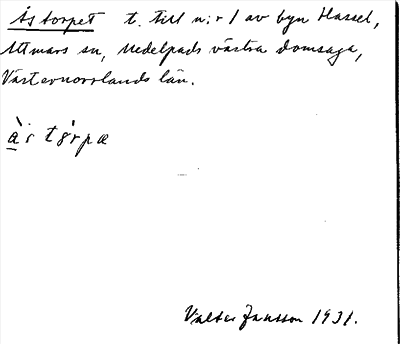 Åstorpet t. till n:r 1 av byn Hassel,
Attmars sn, Medelpads västra domsaga,
Västernorrlands län.
Valter Jansson 1931.